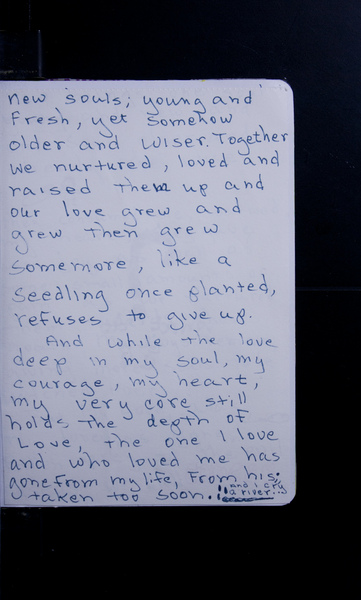 new souls; young and
fresh, yet somehow
older and wiser. Together
we nurtured, loved and
raised them up and
our love grew and
grew then grew
somemore, like a
seedling once planted,
refuses to give up.
And while the love
deep in my soul, my
courage, my heart,
my very core still
holds the depth of
Love, the one I love
and who loved me has
gone from my life, From his;
taken too soon.
and i cry
a river...